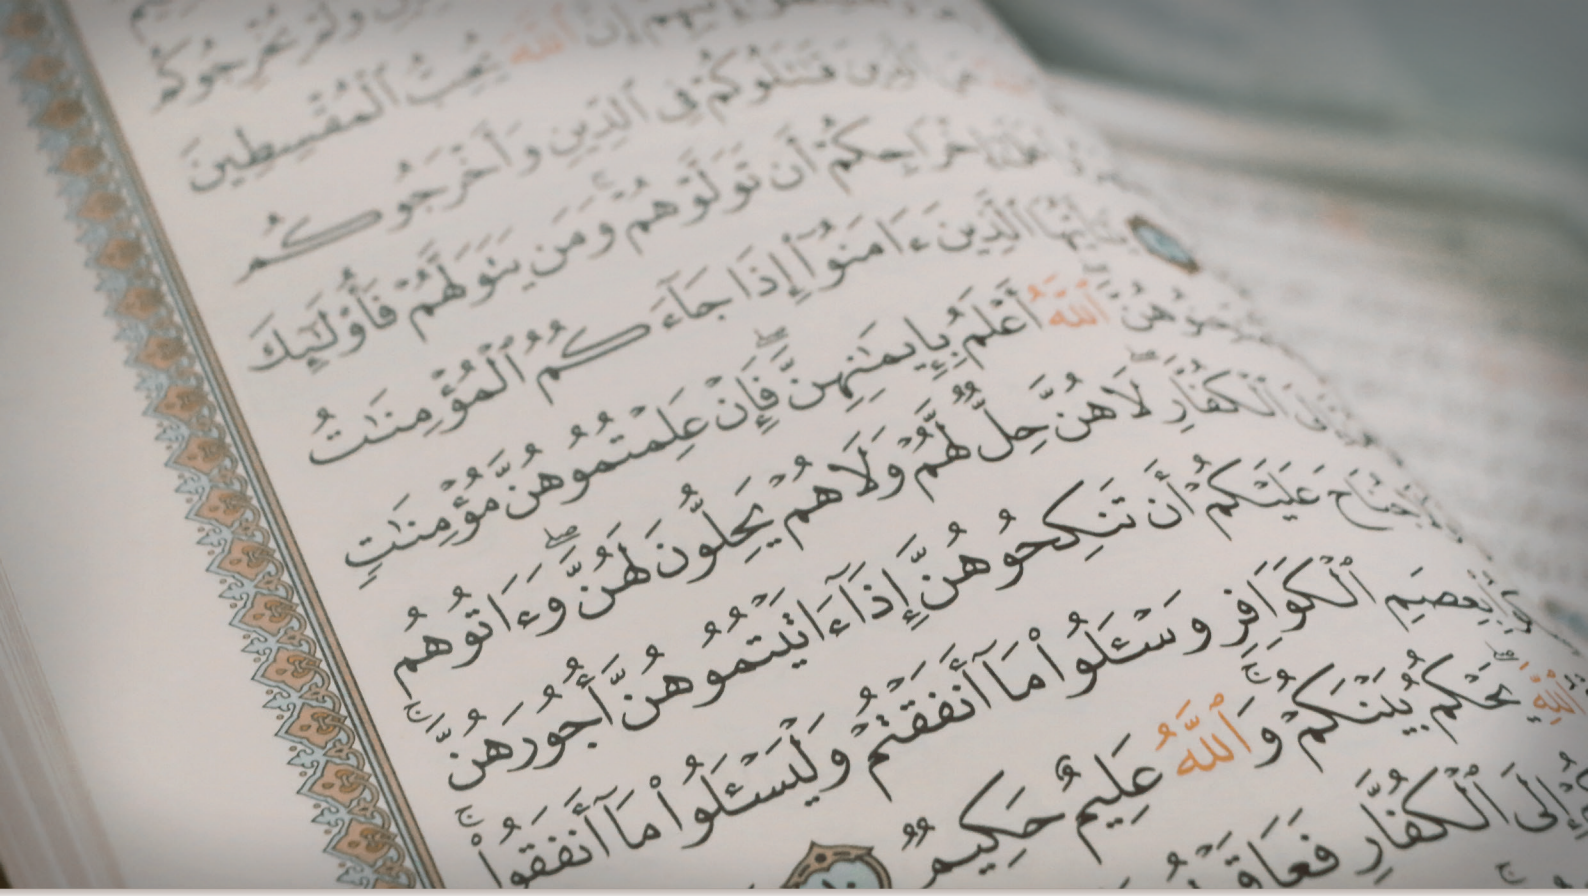 وَلَمْ يُخْرِجُوكُم
إِلَيْهِمْ إِنَّ ٱللَّهَ يُحِبُّ ٱلْمُقْسِطِينَ
ٱلَّذِينَ قَٰتَلُوكُمْ فِى ٱلدِّينِ وَأَخْرَجُوكُم
إِخْرَاجِكُمْ أَن تَوَلَّوْهُمْ ۚ وَمَن يَتَوَلَّهُمْ فَأُو۟لَٰٓئِكَ
يَٰٓأَيُّهَا ٱلَّذِينَ ءَامَنُوٓا۟ إِذَا جَآءَكُمُ ٱلْمُؤْمِنَٰتُ
ٱللَّهُ أَعْلَمُ بِإِيمَٰنِهِنَّ ۖ فَإِنْ عَلِمْتُمُوهُنَّ مُؤْمِنَٰتٍ
ٱلْكُفَّارِ ۖ لَا هُنَّ حِلٌّ لَّهُمْ وَلَا هُمْ يَحِلُّونَ لَهُنَّ ۖ وَءَاتُوهُم
جُنَاحَ عَلَيْكُمْ أَن تَنكِحُوهُنَّ إِذَآ ءَاتَيْتُمُوهُنَّ أُجُورَهُنَّ ۚ
بِعِصَمِ ٱلْكَوَافِرِ وَسْـَٔلُوا۟ مَآ أَنفَقْتُمْ وَلْيَسْـَٔلُوا۟ مَآ أَنفَقُوا۟ ۚ
ٱللَّهِ ۖ يَحْكُمُ بَيْنَكُمْ ۚ وَٱللَّهُ عَلِيمٌ حَكِيمٌ
إِلَى ٱلْكُفَّارِ